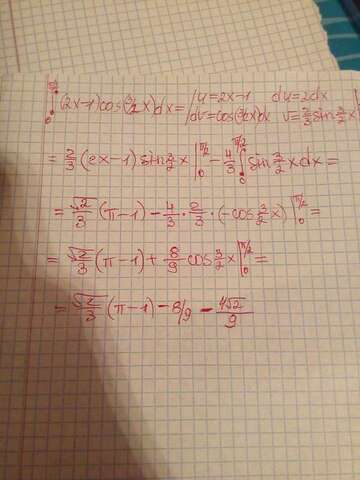 ∫₀^{π/2} (2x-1)cos(3/2 x)dx = | u=2x-1 du=2dx
dv=cos(3/2 x)dx v=2/3 sin 3/2 x |
= 2/3 (2x-1) sin 3/2 x |₀^{π/2} - 4/3 ∫₀^{π/2} sin 3/2 x dx =
= √2/3 (π-1) - 4/3 · 2/3 · (-cos 3/2 x) |₀^{π/2} =
= √2/3 (π-1) + 8/9 cos 3/2 x |₀^{π/2} =
= √2/3 (π-1) - 8/9 - 4√2/9